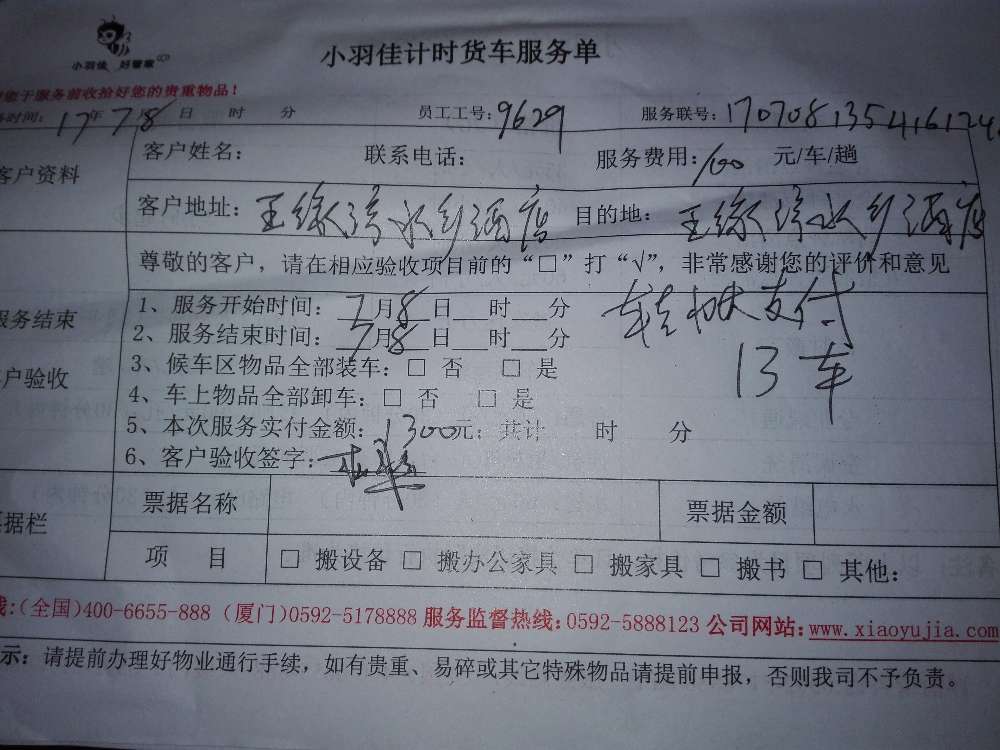 小羽佳 好管家
小羽佳计时货车服务单
您于服务前收拾好您的贵重物品！
时间：17年7月8日 时 分 员工工号：9629 服务联号：170708135416124
客户资料
客户姓名： 联系电话： 服务费用：100 元/车/趟
客户地址： 水乡酒店 目的地： 水乡酒店
尊敬的客户，请在相应验收项目前的“□”打“√”，非常感谢您的评价和意见
服务结束
户验收
1、服务开始时间：7月8日 时 分
2、服务结束时间：7月8日 时 分
3、候车区物品全部装车：□ 否 □ 是
4、车上物品全部卸车：□ 否 □ 是
5、本次服务实付金额：1300元；共计 时 分
6、客户验收签字：
支付
13车
据栏
票据名称 票据金额
项 目 □ 搬设备 □ 搬办公家具 □ 搬家具 □ 搬书 □ 其他：
线：(全国)400-6655-888 (厦门)0592-5178888 服务监督热线：0592-5888123 公司网站：www.xiaoyujia.com
示：请提前办理好物业通行手续，如有贵重、易碎或其它特殊物品请提前申报，否则我司不予负责。